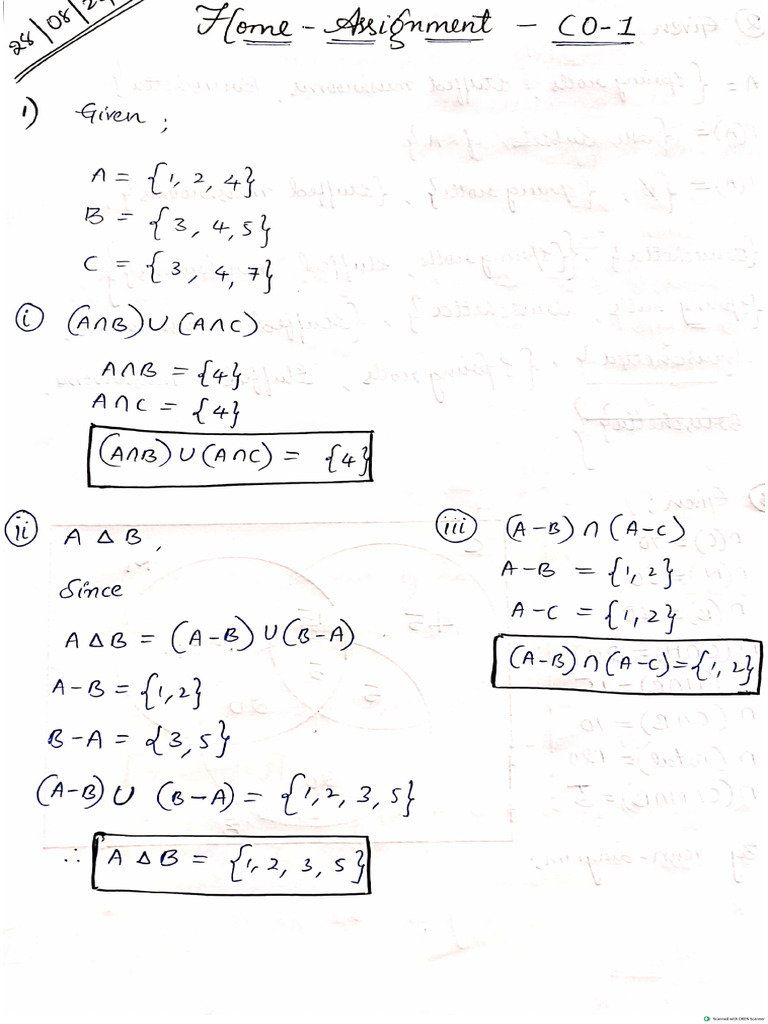 28/08/24
Home - Assignment - CO-1
1) Given ;
A = {1, 2, 4}
B = {3, 4, 5}
C = {3, 4, 7}
(i) (A∩B)∪(A∩C)
A∩B = {4}
A∩C = {4}
(A∩B)∪(A∩C) = {4}
(ii) A Δ B ,
Since
A Δ B = (A-B)∪(B-A)
A-B = {1,2}
B-A = {3,5}
(A-B)∪(B-A) = {1,2,3,5}
∴ A Δ B = {1, 2, 3, 5}
(iii) (A-B)∩(A-C)
A-B = {1,2}
A-C = {1,2}
(A-B)∩(A-C)={1,2}
Scanned with OKEN Scanner